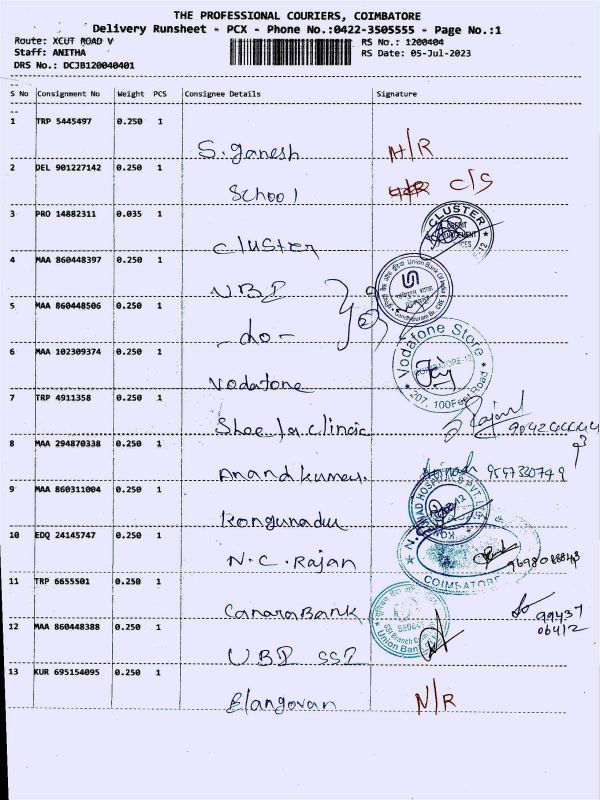 THE PROFESSIONAL COURIERS, COIMBATORE
Delivery Runsheet - PCX - Phone No.:0422-3505555 - Page No.:1
Route: XCUT ROAD V RS No.: 1200404
Staff: ANITHA RS Date: 05-Jul-2023
DRS No.: DCJB120040401
S No Consignment No Weight PCS Consignee Details Signature
1 TRP 5445497 0.250 1
S. Ganesh N/R
2 DEL 901227142 0.250 1
School C/S
3 PRO 14882311 0.035 1
Cluster CLUSTER
4 MAA 860448397 0.250 1
UBI Union Bank Of India
5 MAA 860448506 0.250 1
- do -
6 MAA 102309374 0.250 1
Vodafone Vodafone Store COIMBATORE-12 207, 100Feet Road
7 TRP 4911358 0.250 1
Sheela clinic
8 MAA 294870338 0.250 1
Anand kumar.
9 MAA 860311004 0.250 1
Kongunadu HOSPITALS PVT LTD
10 EDQ 24145747 0.250 1
N.C. Rajan COIMBATORE
11 TRP 6655501 0.250 1
Canara Bank 99437
06412
12 MAA 860448388 0.250 1
UBI SSI SSI Branch Union Bank
13 KUR 695154095 0.250 1
Elangovan N/R